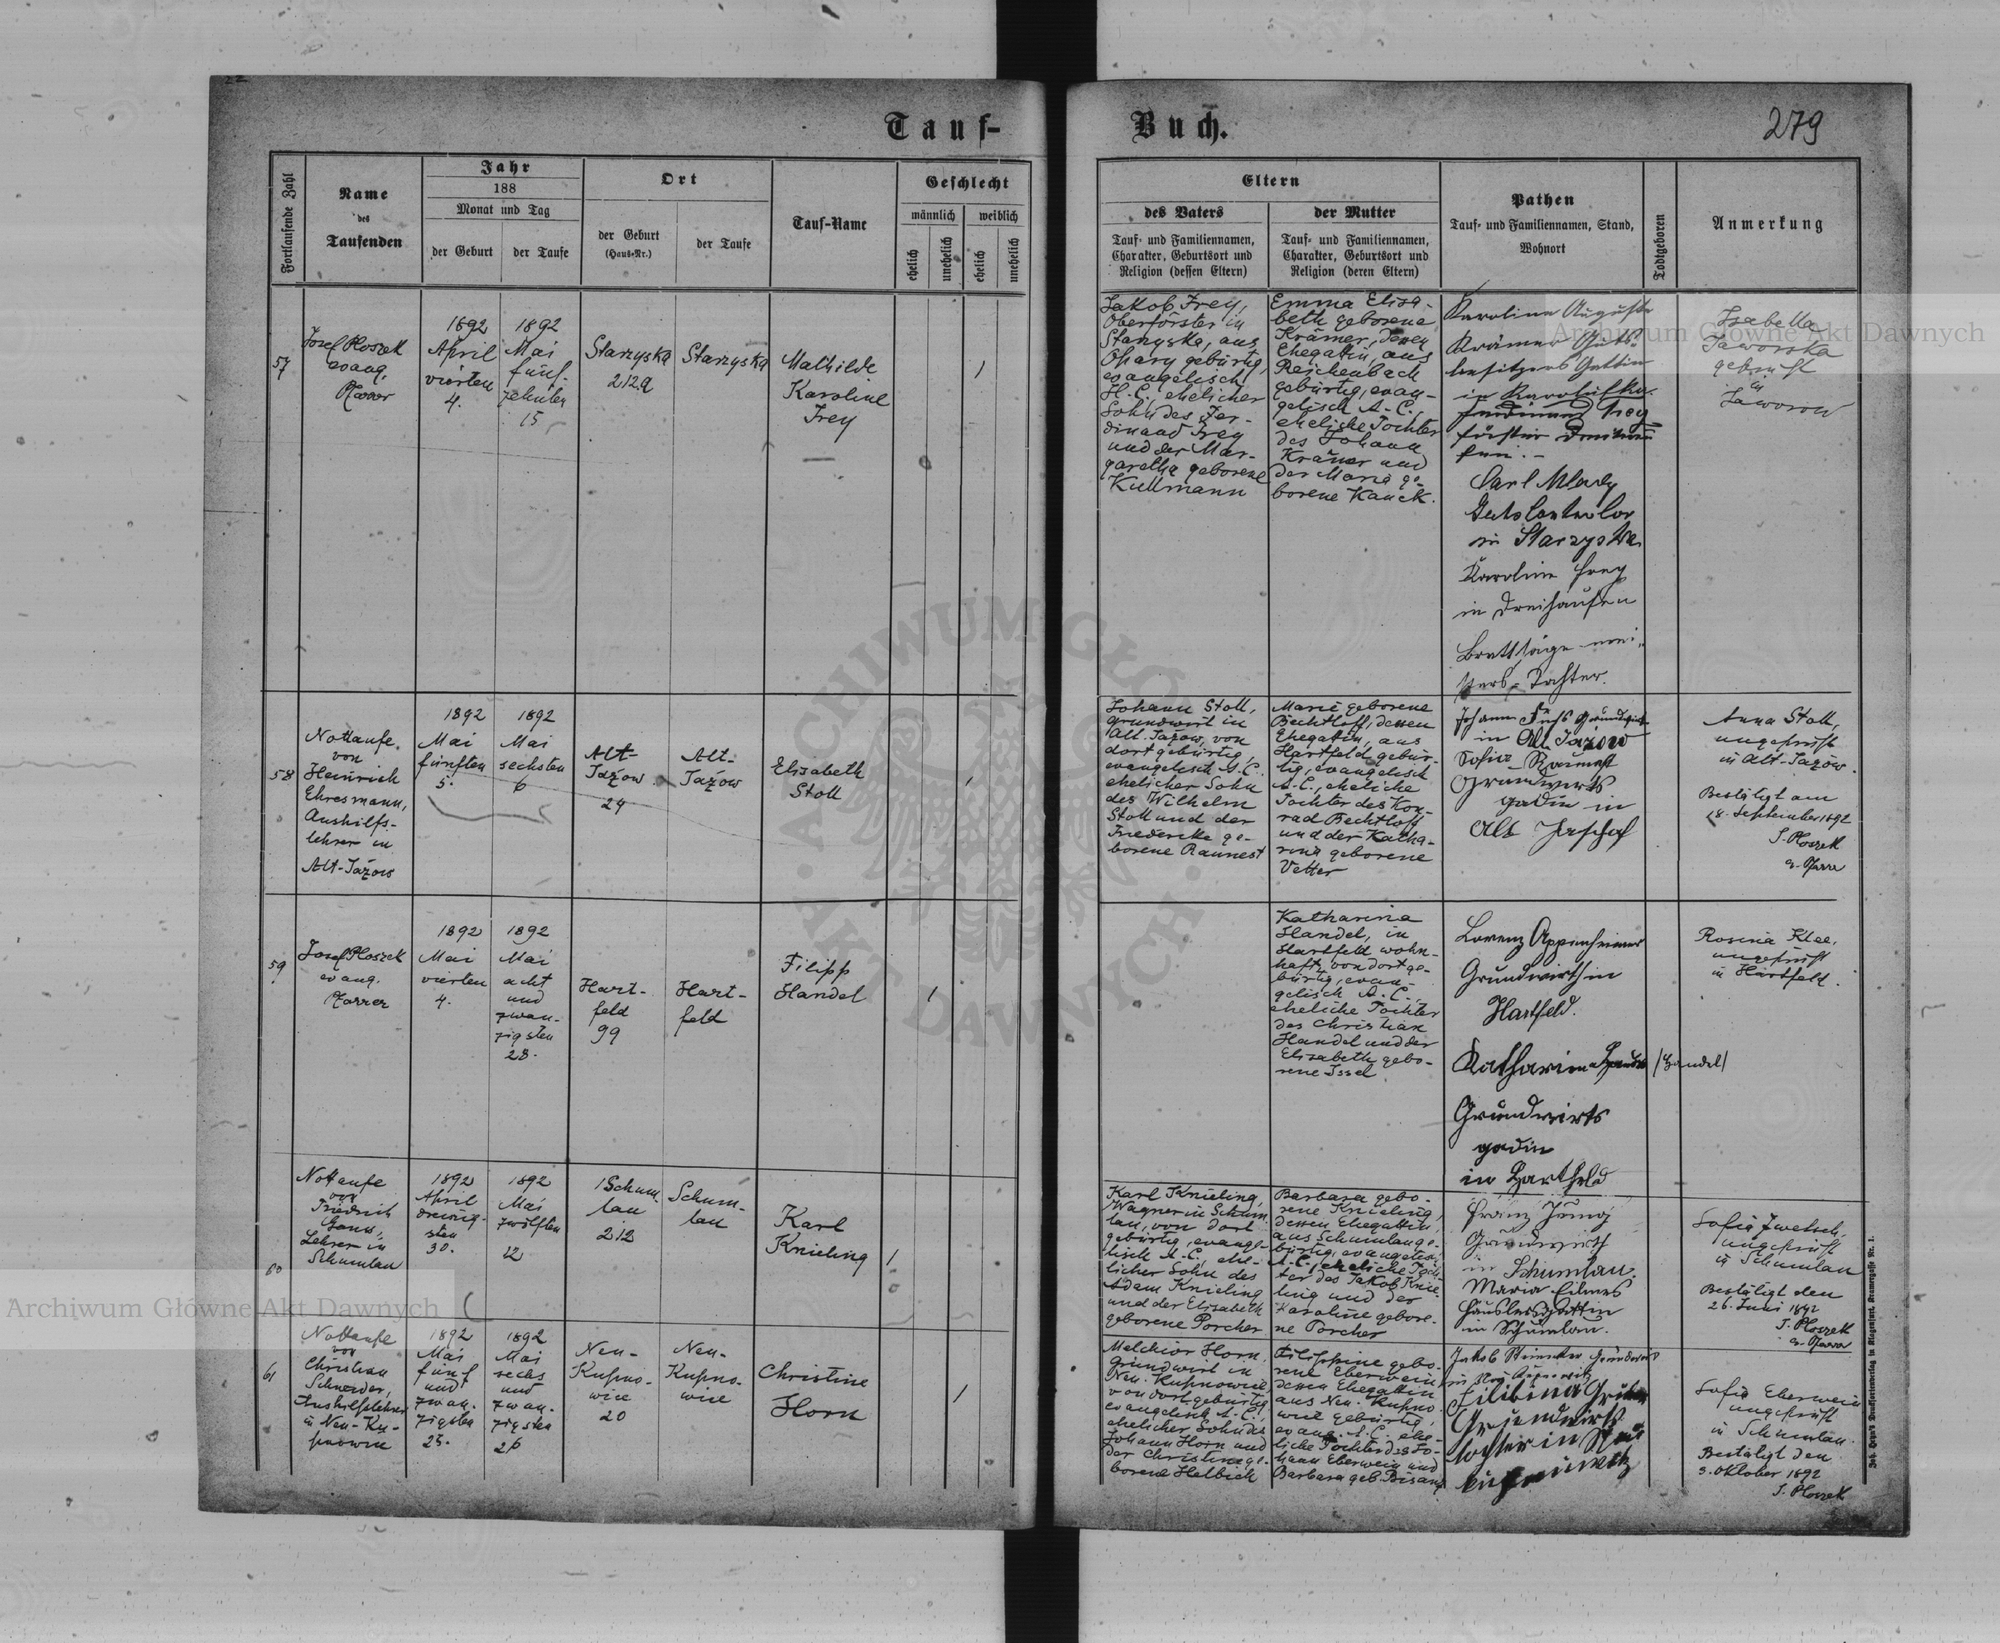 22
Tauf-
Buch.
279
Fortlaufende Zahl
Name
des
Taufenden
Jahr
188
Monat und Tag
der Geburt
der Taufe
Ort
der Geburt
(Haus-Nr.)
der Taufe
Tauf-Name
Geschlecht
männlich
weiblich
ehelich
unehelich
ehelich
unehelich
Eltern
des Vaters
Tauf- und Familiennamen,
Charakter, Geburtsort und
Religion (dessen Eltern)
der Mutter
Tauf- und Familiennamen,
Charakter, Geburtsort und
Religion (deren Eltern)
Pathen
Tauf- und Familiennamen, Stand,
Wohnort
Todtgeboren
Anmerkung
57
Josef Ploszek
evang.
Pfarrer
1892
April
vierten
4.
1892
Mai
fünf-
zehnten
15
Starzyska
212a
Starzyska
Mathilde
Karoline
Frey
1
Jakob Frey,
Oberförster in
Starzyska, aus
Opary gebürtig,
evangelisch
H. C., ehelicher
Sohn des Fer-
dinand Frey
und der Mar-
garetha geborene
Kullmann
Emma Elisa-
beth geborene
Krämer, dessen
Ehegattin, aus
Reichenbach
gebürtig, evan-
gelisch A. C.,
eheliche Tochter
des Johann
Krämer und
der Maria ge-
borene Kauck.
Karoline Auguste
Krämer Guts-
besitzers Gattin
in
Carl Mlady
in Starzyska
Karoline Frey
in Dreihausen
Brettsäge mei-
sters-Tochter.
Isabella
Jaworska
geprüft
in
Jaworow
58
Nottaufe
von
Heinrich
Ehresmann,
Aushilfs-
lehrer in
Alt-Jazów
1892
Mai
fünften
5.
1892
Mai
sechsten
6
Alt-
Jazow
24
Alt-
Jazów
Elisabeth
Stoll
1
Johann Stoll,
Grundwirt in
Alt-Jazow, von
dort gebürtig,
evangelisch A. C.
ehelicher Sohn
des Wilhelm
Stoll und der
Friedericke ge-
borene Raunest
Marie geborene
Bechtloff, dessen
Ehegattin, aus
Hartfeld gebür-
tig, evangelisch
A. C., eheliche
Tochter des Kon-
rad Bechtloff
und der Katha-
rina geborene
Vetter
Johann Fuchs Grundwirt
in Alt Jazow
Sofie Raunest
Grundwirts
gadin in
Alt
Anna Stoll,
ungeprüft
in Alt-Jazow.
Bestätigt am
18. September 1892
J. Ploszek
ev. Pfarrer
59
Josef Ploszek
evang.
Pfarrer
1892
Mai
vierten
4.
1892
Mai
acht
und
zwan-
zigsten
28.
Hart-
feld
99
Hart-
feld
Filipp
Handel
1
Katharina
Handel, in
Hartfeld wohn-
haft, von dort ge-
bürtig, evan-
gelisch A. C.,
eheliche Tochter
des Christian
Handel und der
Elisabeth gebo-
rene Issel
Lorenz Appenheimer
Grundwirth in
Hartfeld.
Katharina Handel /Handel/
Grundwirts
gadin
in Hartfeld
Rosina Klee,
ungeprüft
in Hartfeld.
60
Nottaufe
von
Friedrich
Gans,
Lehrer in
Schumlau
1892
April
dreißig-
sten
30.
1892
Mai
zwölften
12
Schum-
lau
212
Schum-
lau
Karl
Knieling
1
Karl Knieling,
Wagner in Schum-
lau, von dort
gebürtig, evange-
lisch A. C., ehe-
licher Sohn des
Adam Knieling
und der Elisabeth
geborene Porcher
Barbara gebo-
rene Knieling,
dessen Ehegattin,
aus Schumlau ge-
bürtig, evangelisch
A. C., eheliche Toch-
ter des Jakob Knie-
ling und der
Karoline gebore-
ne Porcher
Franz Jung
Grundwirth
in Schumlau.
Maria
Häuslersgattin
in Schumlau.
Sofia Zwetsch,
ungeprüft
in Schumlau
Bestätigt den
26. Juni 1892
J. Ploszek
ev. Pfarrer
61
Nottaufe
von
Christian
Schneider,
Aushilfslehrer
in Neu-Ku-
pnowice
1892
Mai
fünf
und
zwan-
zigsten
25.
1892
Mai
sechs
und
zwan-
zigsten
26
Neu-
Kupno-
wice
20
Neu-
Kupno-
wice
Christine
Horn
1
Melchior Horn,
Grundwirt in
Neu-Kupnowice
von dort gebürtig
evangelisch A. C.,
ehelicher Sohn des
Johann Horn und
der Christine ge-
borene Helbich
Filippine gebo-
rene Eberwein,
dessen Ehegattin
aus Neu-Kupno-
wice gebürtig,
evang. A. C. ehe-
liche Tochter des Jo-
hann Eberwein und
Barbara geb. Bisanz
Jakob
Grundwirts
tochter in Neu
Sofia Eberwein
ungeprüft
in Schumlau.
Bestätigt den
3. Oktober 1892
J. Ploszek
Joh. Heyn's Drucksortenverlag in Klagenfurt, Kramergasse Nr. 1.
Archiwum Główne Akt Dawnych
ARCHIWUM GŁÓWNE AKT DAWNYCH
Archiwum Główne Akt Dawnych